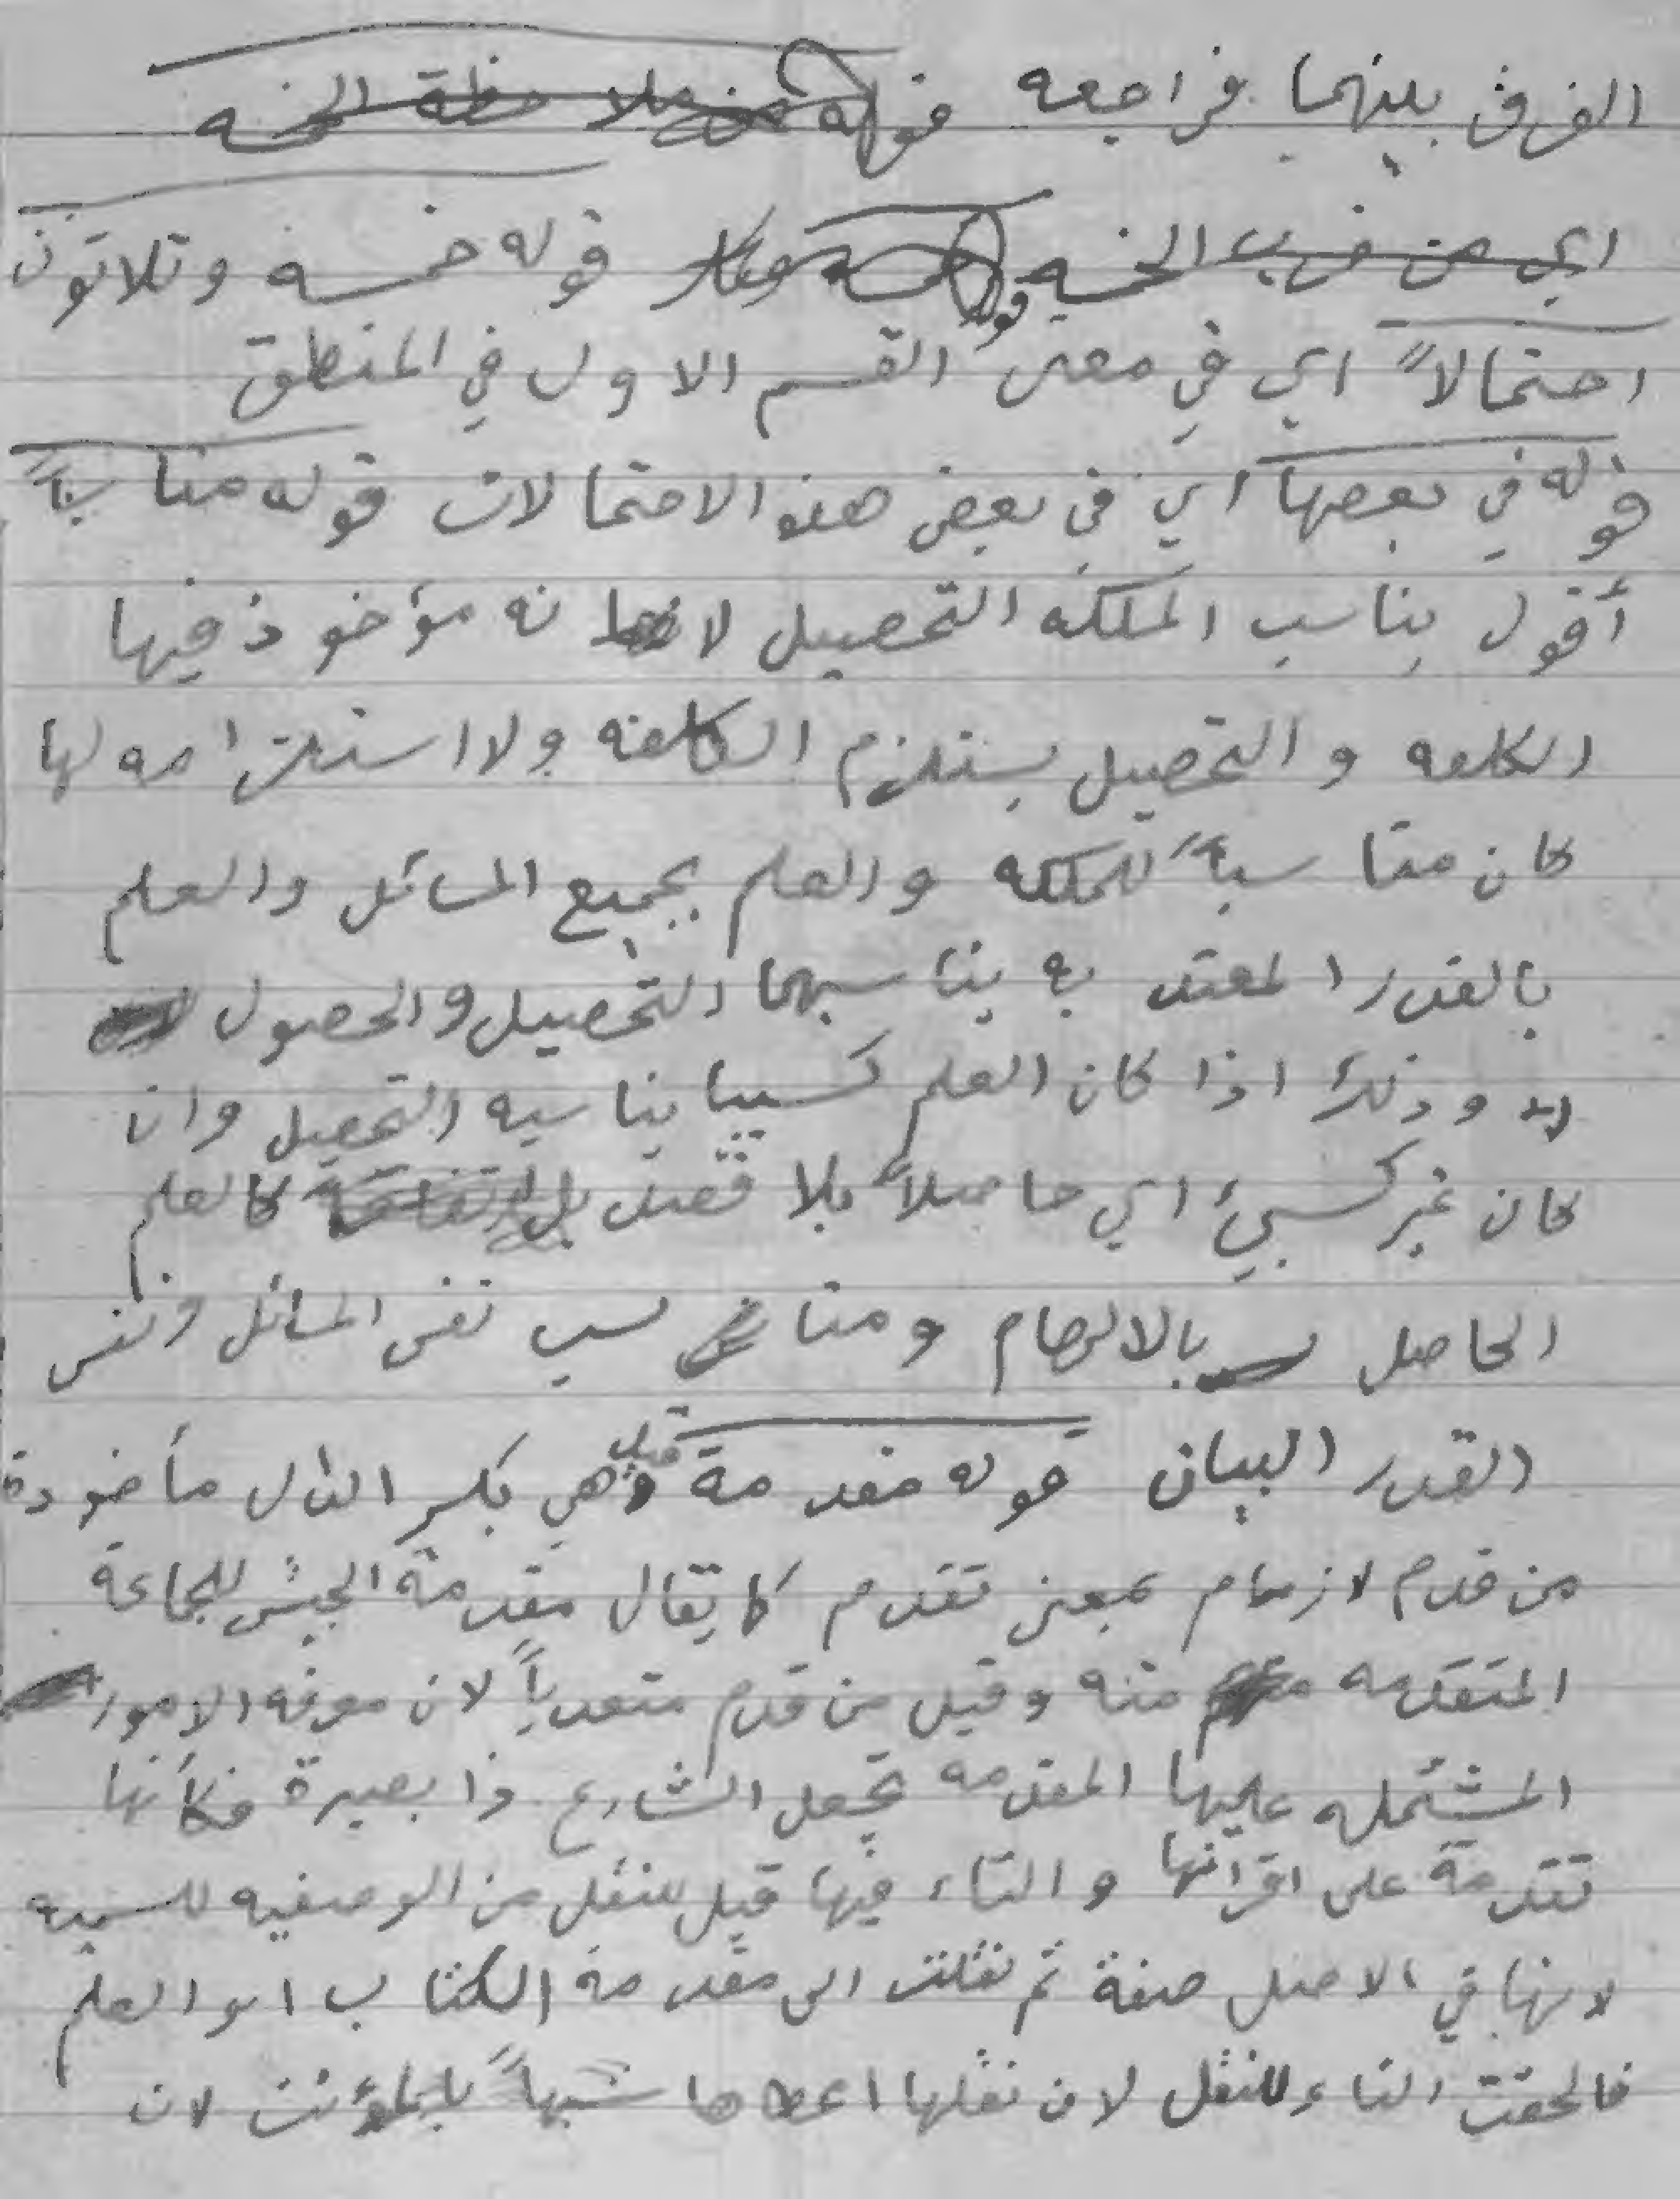 الفرق بينهما فراجعه قوله من ملاحظة الخمسه
اي من ضرب الخمسه قوله خمسه وتلاتون
احتمالاً اي في معنى القسم الاول في المنطق
قوله في بعضها اي في بعض هذه الاحتمالات قوله مناسباً
أقول يناسب الملكه التحصيل لانه مؤخوذ فيها
الكلفه والتحصيل يستلزم الكلفه ولاستلزامه لها
كان مناسباً للملكه والعلم بجميع المسائل والعلم
بالقدر المعتد به يناسبهما التحصيل والحصول
وذلك اذا كان العلم كسبيا يناسبه التحصيل وان
كان غير كسبيٍ اي حاصلاً بلا قصد كالعلم
الحاصل بالالهام ومناسب نفس المسائل ونفس
القدر البيان قوله مقدمة قيل وهي بكسر الدال مأخوذة
من قدم لازم بمعنى تقدم كما يقال مقدمة الجيش للجماعة
المتقدمه منه وقيل من قدم متعدياً لان معرفه الامور
المشتمله عليها المقدمه تجعل الشارع ذا بصيرة فكأنها
تقدمة على اقرانها والتاء فيها قيل للنقل من الوصفيه للاسميه
لانها في الاصل صفة ثم نقلت الى مقدمة الكتاب او العلم
فالحقت التاء للنقل لان نقلها اعطاها شبهاً بالمؤنث لان